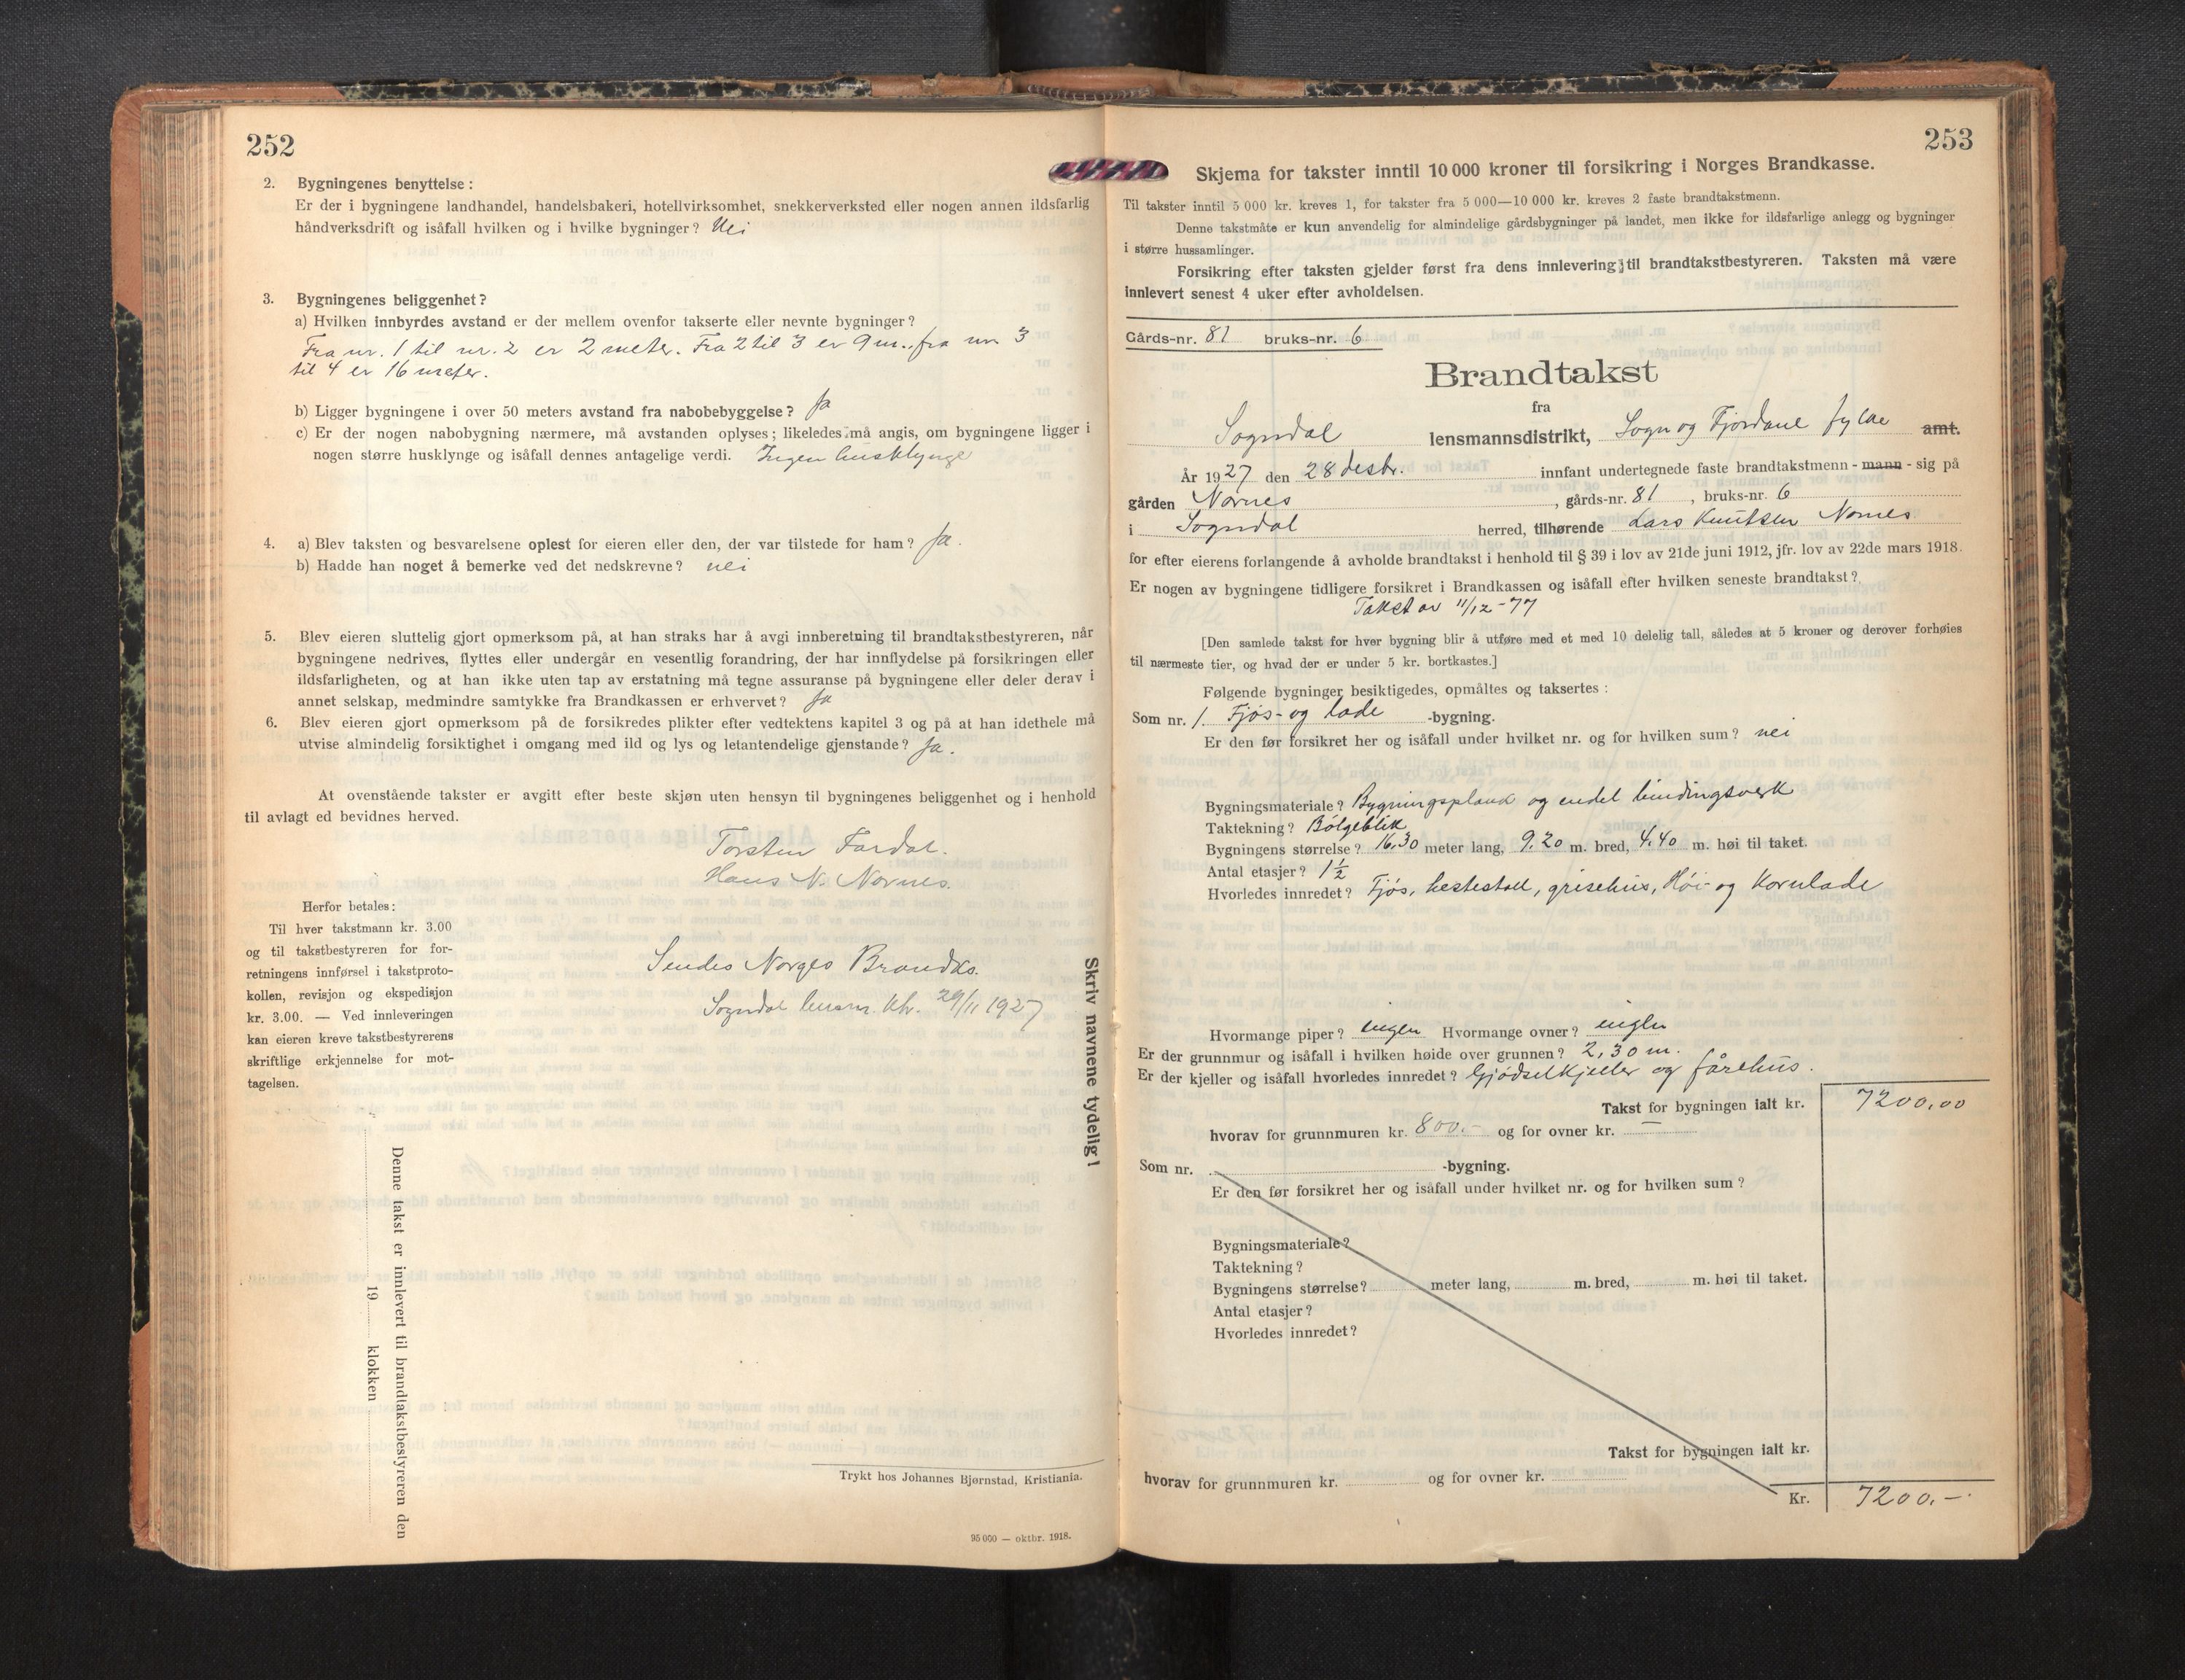 252
2. Bygningenes benyttelse :
Er der i bygningene landhandel, handelsbakeri, hotellvirksomhet, snekkerverksted eller nogen annen ildsfarlig
håndverksdrift og isåfall hvilken og i hvilke bygninger? Nei
3. Bygningenes beliggenhet?
a) Hvilken innbyrdes avstand er der mellem ovenfor takserte eller nevnte bygninger?
Fra nr. 1 til nr. 2 er 2 meter. Fra 2 til 3 er 9 m., fra nr 3
til 4 er 16 meter.
b) Ligger bygningene i over 50 meters avstand fra nabobebyggelse? Ja
c) Er der nogen nabobygning nærmere, må avstanden oplyses; likeledes må angis, om bygningene ligger i
nogen større husklynge og isåfall dennes antagelige verdi. Ingen husklynge
4. a) Blev taksten og besvarelsene oplest for eieren eller den, der var tilstede for ham? Ja.
b) Hadde han noget å bemerke ved det nedskrevne? nei
5. Blev eieren sluttelig gjort opmerksom på, at han straks har å avgi innberetning til brandtakstbestyreren, når
bygningene nedrives, flyttes eller undergår en vesentlig forandring, der har innflydelse på forsikringen eller
ildsfarligheten, og at han ikke uten tap av erstatning må tegne assuranse på bygningene eller deler derav i
annet selskap, medmindre samtykke fra Brandkassen er erhvervet? Ja
6. Blev eieren gjort opmerksom på de forsikredes plikter efter vedtektens kapitel 3 og på at han idethele må
utvise almindelig forsiktighet i omgang med ild og lys og letantendelige gjenstande? Ja.
At ovenstående takster er avgitt efter beste skjøn uten hensyn til bygningenes beliggenhet og i henhold
til avlagt ed bevidnes herved.
Torsten Fardal.
Hans N. Nornes.
Herfor betales:
Til hver takstmann kr. 3.00
og til takstbestyreren for for-
retningens innførsel i takstproto-
kollen, revisjon og ekspedisjon
kr. 3.00. — Ved innleveringen
kan eieren kreve takstbestyrerens
skriftlige erkjennelse for mot-
tagelsen.
Sendes Norges Brandks.
Sogndal lensm. ktr. 29/11 1927
Skriv navnene tydelig!
Denne takst er innlevert til brandtakstbestyreren den
19 klokken
Trykt hos Johannes Bjørnstad, Kristiania.
95 000 — oktbr. 1918.
253
Skjema for takster inntil 10 000 kroner til forsikring i Norges Brandkasse.
Til takster inntil 5 000 kr. kreves 1, for takster fra 5 000—10 000 kr. kreves 2 faste brandtakstmenn.
Denne takstmåte er kun anvendelig for almindelige gårdsbygninger på landet, men ikke for ildsfarlige anlegg og bygninger
i større hussamlinger.
Forsikring efter taksten gjelder først fra dens innlevering til brandtakstbestyreren. Taksten må være
innlevert senest 4 uker efter avholdelsen.
Gårds-nr. 81 bruks-nr. 6
Brandtakst
fra
Sogndal lensmannsdistrikt, Sogn og Fjordane fylke amt.
År 1927 den 28 desbr. innfant undertegnede faste brandtakstmenn - mann - sig på
gården Nornes, gårds-nr. 81, bruks-nr. 6
i Sogndal herred, tilhørende Lars Knutsen Nornes
for efter eierens forlangende å avholde brandtakst i henhold til § 39 i lov av 21de juni 1912, jfr. lov av 22de mars 1918.
Er nogen av bygningene tidligere forsikret i Brandkassen og isåfall efter hvilken seneste brandtakst?
Takst av 11/12-77
[Den samlede takst for hver bygning blir å utføre med et med 10 delelig tall, således at 5 kroner og derover forhøies
til nærmeste tier, og hvad der er under 5 kr. bortkastes.]
Følgende bygninger besiktigedes, opmåltes og taksertes :
Som nr. 1. Fjøs- og lade -bygning.
Er den før forsikret her og isåfall under hvilket nr. og for hvilken sum? nei
Bygningsmateriale? Bygningsplank og endel bindingsverk
Taktekning? Bølgeblik
Bygningens størrelse? 16.30 meter lang, 9.20 m. bred, 4.40 m. høi til taket.
Antal etasjer? 1½
Hvorledes innredet? Fjøs, hestestall, grisehus, Høi- og Kornlade
Hvormange piper? ingen Hvormange ovner? ingen
Er der grunnmur og isåfall i hvilken høide over grunnen? 2,30 m.
Er der kjeller og isåfall hvorledes innredet? Gjødselkjeller og fårehus.
Takst for bygningen ialt kr. 7200,00
hvorav for grunnmuren kr. 800.- og for ovner kr. —
Som nr. -bygning.
Er den før forsikret her og isåfall under hvilket nr. og for hvilken sum?
Bygningsmateriale?
Taktekning?
Bygningens størrelse? meter lang, m. bred, m. høi til taket.
Antal etasjer?
Hvorledes innredet?
Takst for bygningen ialt kr.
hvorav for grunnmuren kr. og for ovner kr.
Kr. 7200.-